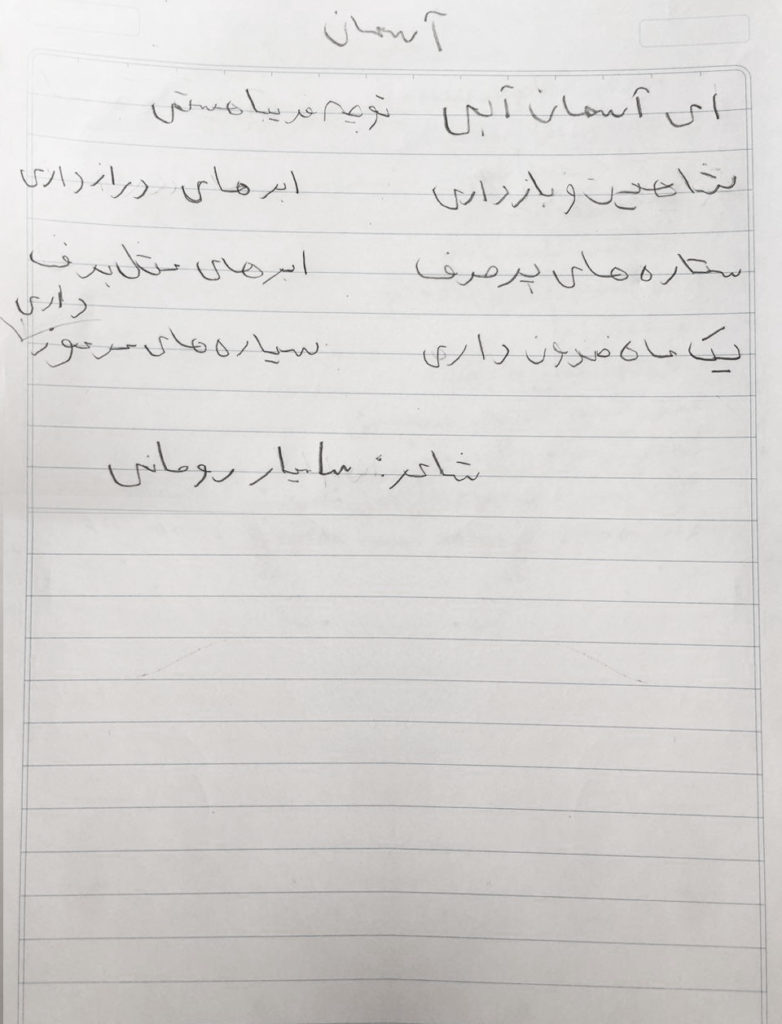 آسمان
ای آسمان آبی توچه فریبا هستی
شاهین و باز داری ابرهای دراز داری
ستاره های پر حرف ابرهای مثل برف
داری
یک ماه فزون داری سیاره های مرموز
شاعر: سامیار رومانی